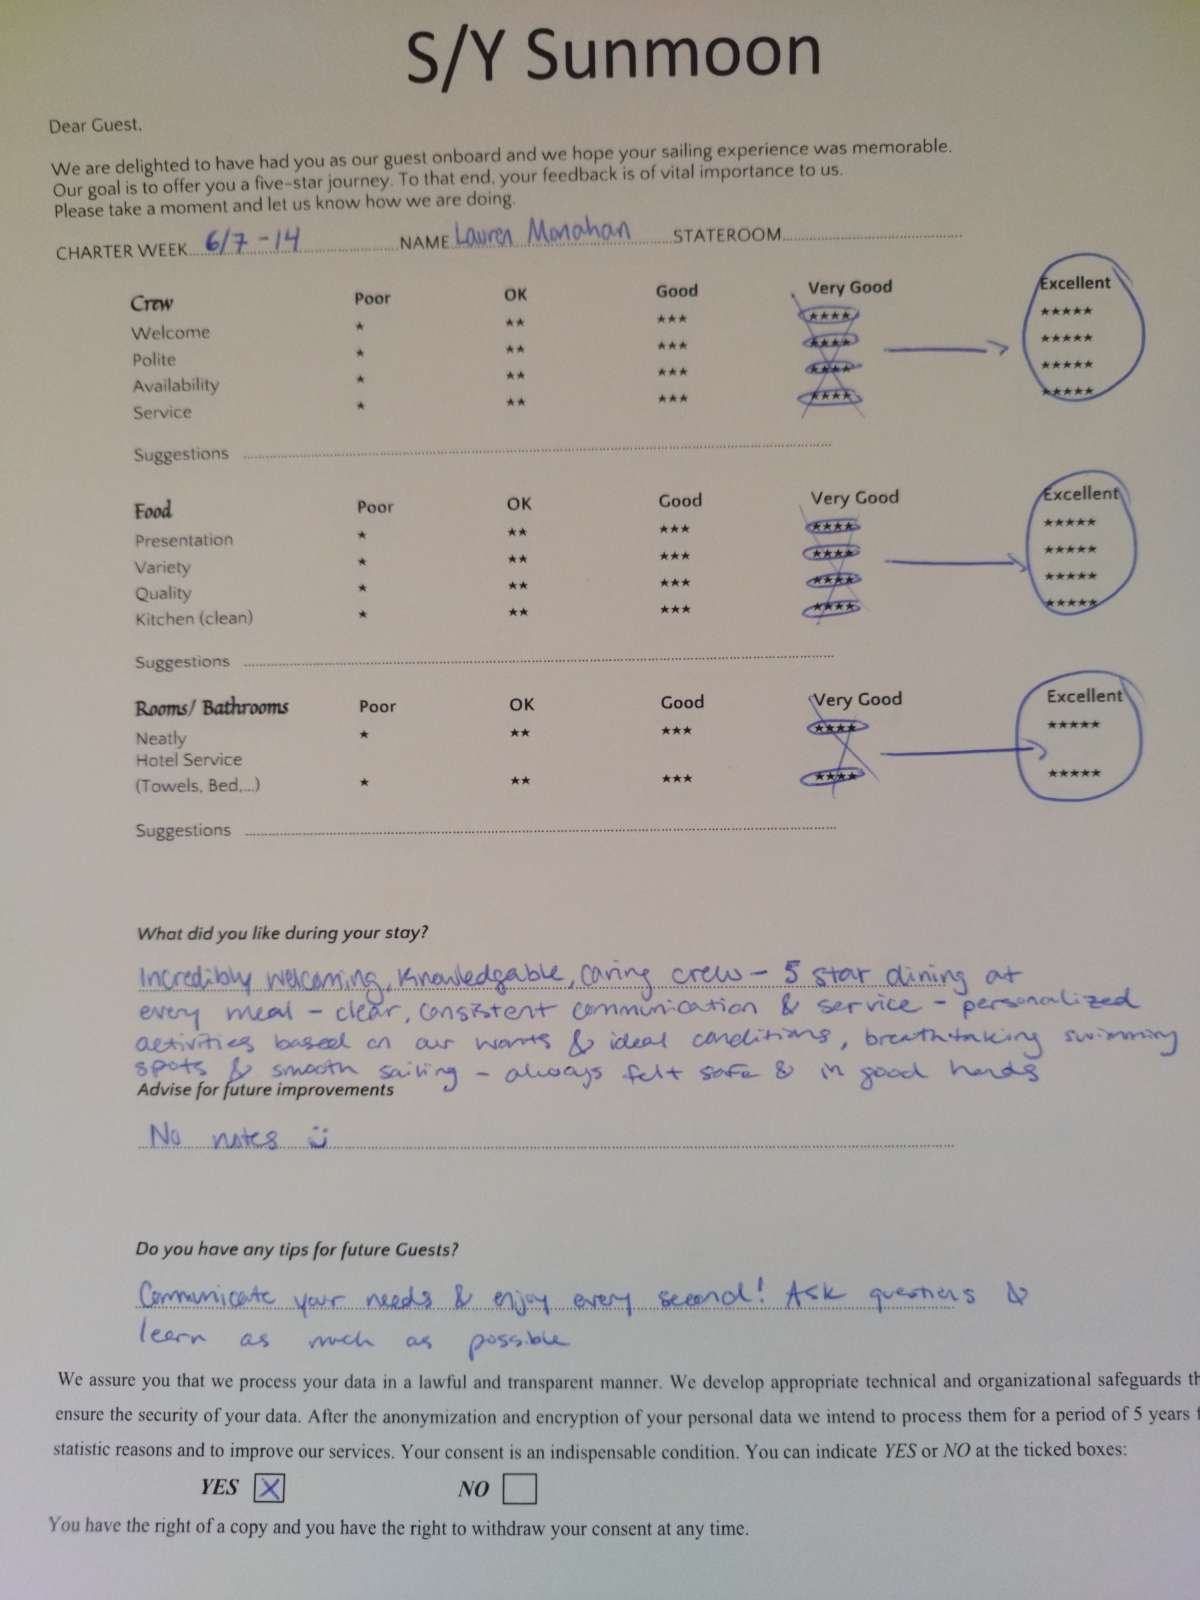 S/Y Sunmoon
Dear Guest,
We are delighted to have had you as our guest onboard and we hope your sailing experience was memorable.
Our goal is to offer you a five-star journey. To that end, your feedback is of vital importance to us.
Please take a moment and let us know how we are doing.
CHARTER WEEK 6/7-14 NAME Lauren Monahan STATEROOM
Crew Poor OK Good Very Good Excellent
Welcome ★ ★★ ★★★ ★★★★ ★★★★★
Polite ★ ★★ ★★★ ★★★★ ★★★★★
Availability ★ ★★ ★★★ ★★★★ ★★★★★
Service ★ ★★ ★★★ ★★★★ ★★★★★
Suggestions
Food Poor OK Good Very Good Excellent
Presentation ★ ★★ ★★★ ★★★★ ★★★★★
Variety ★ ★★ ★★★ ★★★★ ★★★★★
Quality ★ ★★ ★★★ ★★★★ ★★★★★
Kitchen (clean) ★ ★★ ★★★ ★★★★ ★★★★★
Suggestions
Rooms/ Bathrooms Poor OK Good Very Good Excellent
Neatly ★ ★★ ★★★ ★★★★ ★★★★★
Hotel Service
(Towels, Bed,...) ★ ★★ ★★★ ★★★★ ★★★★★
Suggestions
What did you like during your stay?
Incredibly welcoming, knowledgable, caring crew - 5 star dining at
every meal - clear, consistent communication & service - personalized
activities based on our wants & ideal conditions, breathtaking swimming
spots & smooth sailing - always felt safe & in good hands
Advise for future improvements
No notes :)
Do you have any tips for future Guests?
Communicate your needs & enjoy every second! Ask questions &
learn as much as possible
We assure you that we process your data in a lawful and transparent manner. We develop appropriate technical and organizational safeguards th
ensure the security of your data. After the anonymization and encryption of your personal data we intend to process them for a period of 5 years f
statistic reasons and to improve our services. Your consent is an indispensable condition. You can indicate YES or NO at the ticked boxes:
YES X NO
You have the right of a copy and you have the right to withdraw your consent at any time.